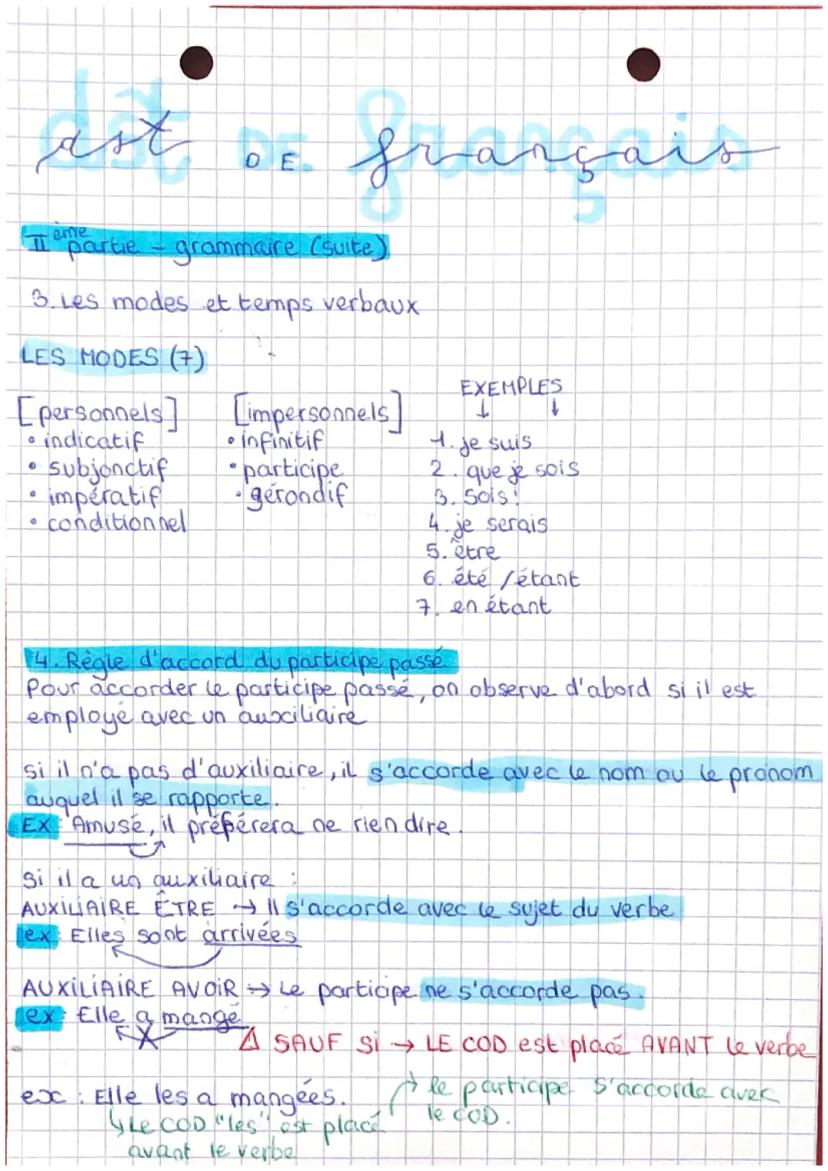 dst DE français
IIème partie - grammaire (suite)
3. Les modes et temps verbaux
LES MODES (7)
EXEMPLES
↓ ↓
[personnels]
• indicatif
• subjonctif
• impératif
• conditionnel
[impersonnels]
• infinitif
• participe
• gérondif
1. je suis
2. que je sois
3. Sois!
4. je serais
5. être
6. été /étant
7. en étant
4. Règle d'accord du participe passé
Pour accorder le participe passé, on observe d'abord si il est
employé avec un auxiliaire
si il n'a pas d'auxiliaire, il s'accorde avec le nom ou le pronom
auquel il se rapporte.
EX: Amusé, il préférera ne rien dire.
Si il a un auxiliaire :
AUXILIAIRE ÊTRE → Il s'accorde avec le sujet du verbe
ex: Elles sont arrivées
AUXILIAIRE AVOIR → Le participe ne s'accorde pas.
ex: Elle a mangé
⚠ SAUF Si → LE COD est placé AVANT le verbe
ex : Elle les a mangées.
↳ Le COD "les" est placé
avant le verbe
→ le participe s'accorde avec
le COD.